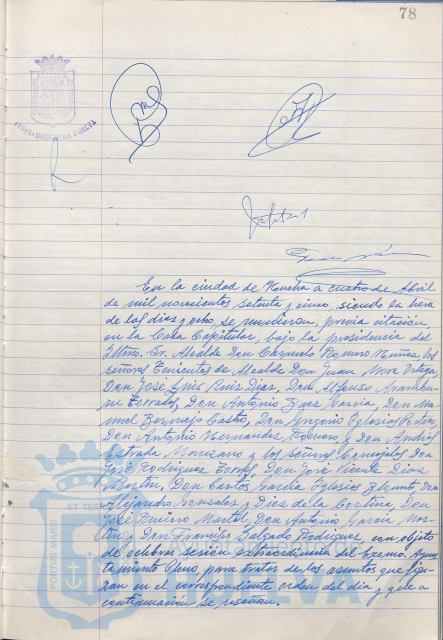 78
AYUNTAMIENTO DE HUELVA
En la ciudad de Huelva a cuatro de Abril
de mil novecientos setenta y cinco, siendo la hora
de las diez y ocho, se reunieron, previa citación,
en la Casa Capitular, bajo la presidencia del
Iltmo. Sr. Alcalde Don Carmelo Romero Núñez, los
señores Tenientes de Alcalde Don Juan Mora Ortega,
Don José Luis Ruiz Díaz, Don Alfonso Arambu-
ru Terrades, Don Antonio Baez García, Don Ma-
nuel Bermejo Castro, Don Gregorio Iglesias
Don Antonio Hernandez Romero y Don Andrés
Estrada y los señores Concejales Don
José Rodriguez Don José Vicente Díaz
Martín, Don Carlos García Iglesias Don
Alejandro Gonzalez y Diez de la Cortina, Don
José Romero Martel, Don Antonio García Mar-
tín y Don Francisco Salgado Rodriguez, con objeto
de celebrar sesión extraordinaria del Excmo. Ayun-
tamiento Pleno, para tratar de los asuntos que figu-
ran en el correspondiente orden del día y que a
continuación se reseñan.
PORTUS MARIS
ET TERRAE
HUELVA